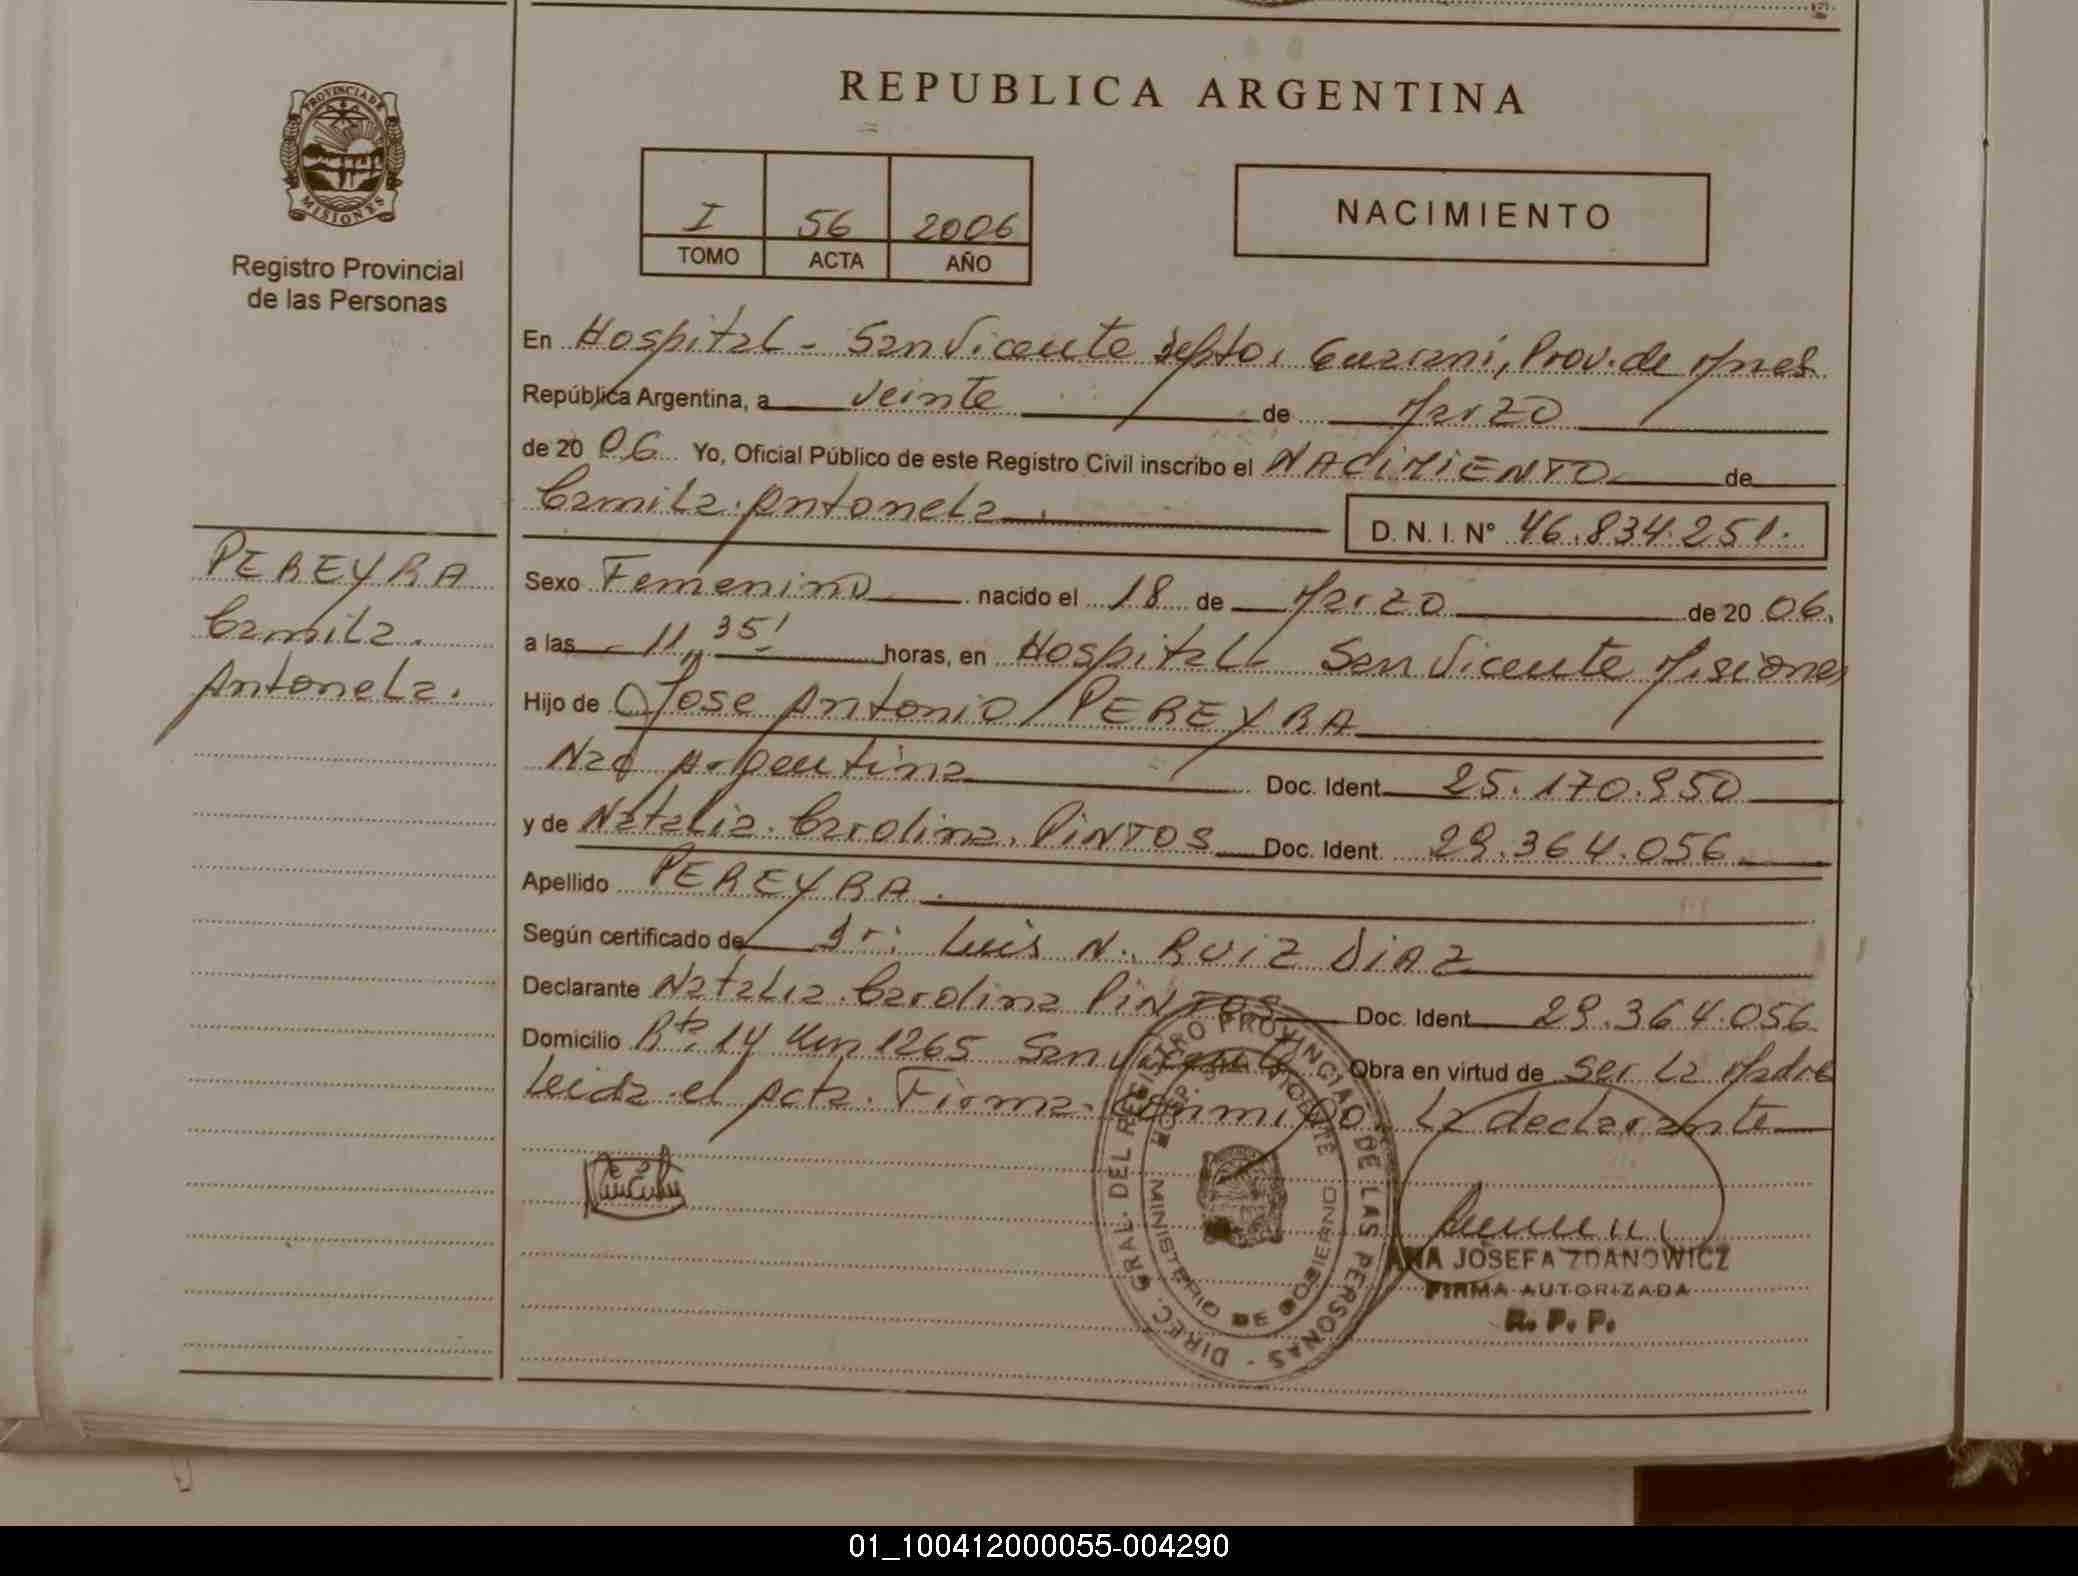 REPUBLICA ARGENTINA
PROVINCIA DE
MISIONES
Registro Provincial
de las Personas
I 56 2006
TOMO ACTA AÑO
NACIMIENTO
En Hospital - San Vicente Depto. Guarani, Prov. de Mnes
República Argentina, a veinte de Marzo
de 20 06 Yo, Oficial Público de este Registro Civil inscribo el NACIMIENTO de
Camila Antonela
D. N. I. N° 46.834.251.
PEREYRA
Camila.
Antonela.
Sexo Femenino nacido el 18 de Marzo de 20 06.
a las 11,, 35' horas, en Hospital San Vicente Misiones
Hijo de Jose Antonio PEREYRA
Nac Argentina Doc. Ident. 25.170.950
y de Natalia Carolina PINTOS Doc. Ident. 29.364.056
Apellido PEREYRA.
Según certificado de Dr: Luis N. RUIZ DIAZ
Declarante Natalia Carolina PINTOS Doc. Ident. 29.364.056
Domicilio Rta. 14 Km 1265 San Vicente Obra en virtud de ser la Madre
Leida el acta. Firma conmigo la declarante
DIREC. GRAL. DEL REGISTRO PROVINCIAL DE LAS PERSONAS -
HOSP. SAN VICENTE
MINISTERIO DE GOBIERNO
ANA JOSEFA ZDANOWICZ
FIRMA AUTORIZADA
R. P. P.
01_100412000055-004290